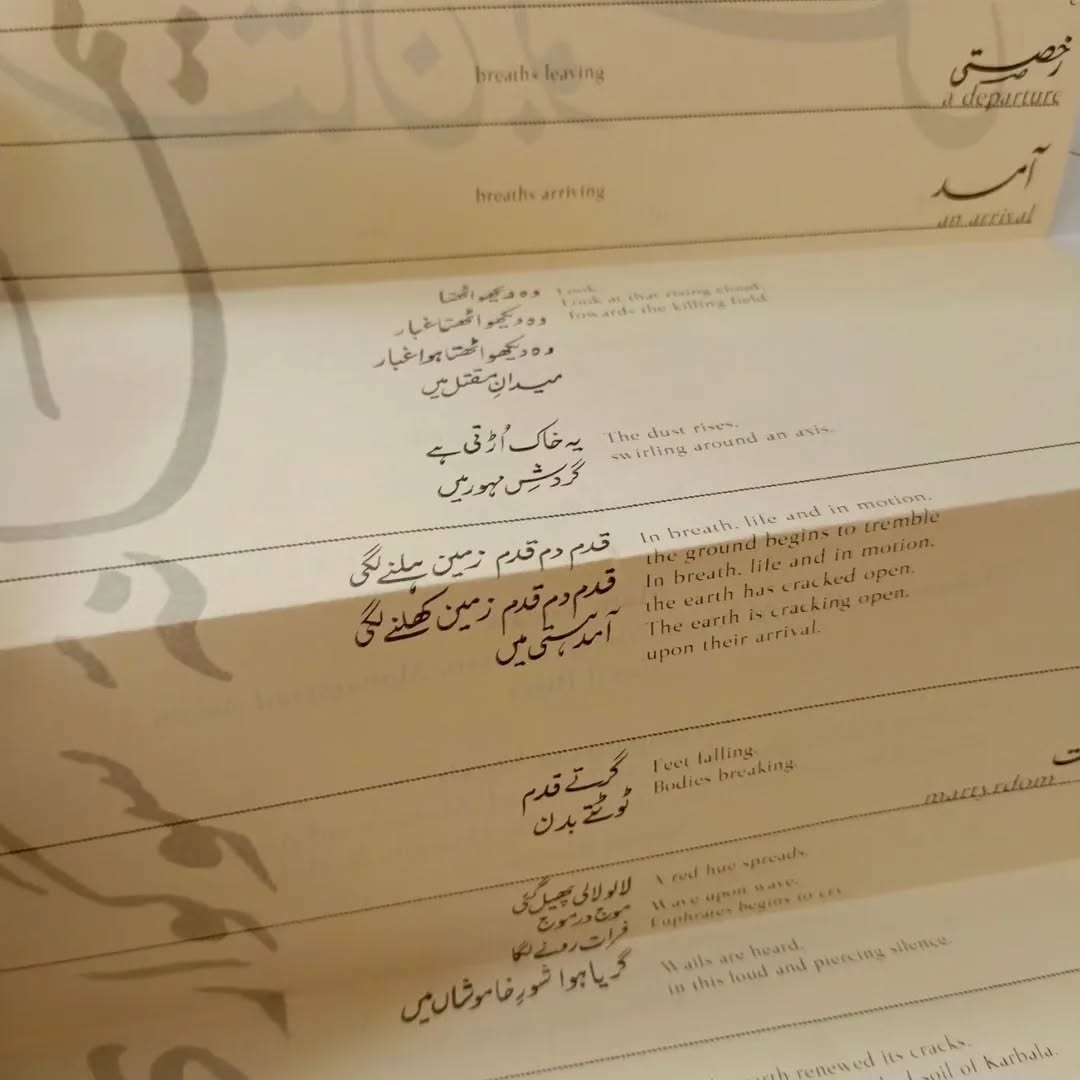 breaths leaving
رخصتی
a departure
breaths arriving
آمد
an arrival
وہ دیکھو اٹھتا
وہ دیکھو اٹھتا غبار
وہ دیکھو اٹھتا ہوا غبار
میدانِ مقتل میں
Look.
Look at that rising cloud,
Towards the killing field.
یہ خاک اُڑتی ہے
گردشِ مہور میں
The dust rises,
swirling around an axis.
قدم دم قدم زمین ہلنے لگی
قدم دم قدم زمین کھلنے لگی
آمد ہستی میں
In breath, life and in motion,
the ground begins to tremble
In breath, life and in motion,
the earth has cracked open.
The earth is cracking open,
upon their arrival.
گرتے قدم
ٹوٹتے بدن
Feet falling.
Bodies breaking.
ت
martyrdom
لالو لالی پھیل گئی
موج در موج
فرات رونے لگا
گریا ہوا شورِ خاموشاں میں
A red hue spreads.
Wave upon wave,
Euphrates begins to cry.
Wails are heard,
in this loud and piercing silence.
renewed its cracks,
soil of Karbala.